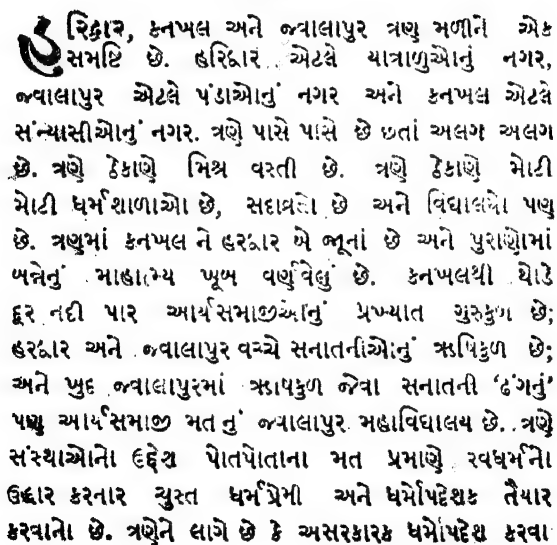 હરિદ્વાર, કનખલ અને જ્વાલાપુર ત્રણુ મળીને એક
સમષ્ટિ છે. હરિદ્વાર એટલે યાત્રાળુઓનું નગર,
જ્વાલાપુર એટલે પંડાઓનું નગર અને કનખલ એટલે
સંન્યાસીઓનું નગર. ત્રણે પાસે પાસે છે છતાં અલગ અલગ
છે. ત્રણે ઠેકાણે મિશ્ર વસ્તી છે. ત્રણે ઠેકાણે મોટી
મોટી ધર્મશાળાઓ છે, સદાવ્રતો છે અને વિદ્યાલયો પણ
છે. ત્રણમાં કનખલ ને હરદ્વાર બે જૂનાં છે અને પુરાણોમાં
બન્નેનું માહાત્મ્ય ખૂબ વર્ણવેલું છે. કનખલથી થોડે
દૂર નદી પાર આર્યસમાજીઓનું પ્રખ્યાત ગુરુકુળ છે;
હરદ્વાર અને જ્વાલાપુર વચ્ચે સનાતનીઓનું ઋષિકુળ છે;
અને ખુદ જ્વાલાપુરમાં ઋષિકુળ જેવા સનાતની 'ઢંગનું'
પણ આર્યસમાજી મતનું જ્વાલાપુર મહાવિદ્યાલય છે. ત્રણે
સંસ્થાઓનો ઉદ્દેશ પોતપોતાના મત પ્રમાણે સ્વધર્મનો
ઉદ્ધાર કરનાર ચુસ્ત ધર્મપ્રેમી અને ધર્મોપદેશક તૈયાર
કરવાનો છે. ત્રણેને લાગે છે કે અસરકારક ધર્મોપદેશ કરવા